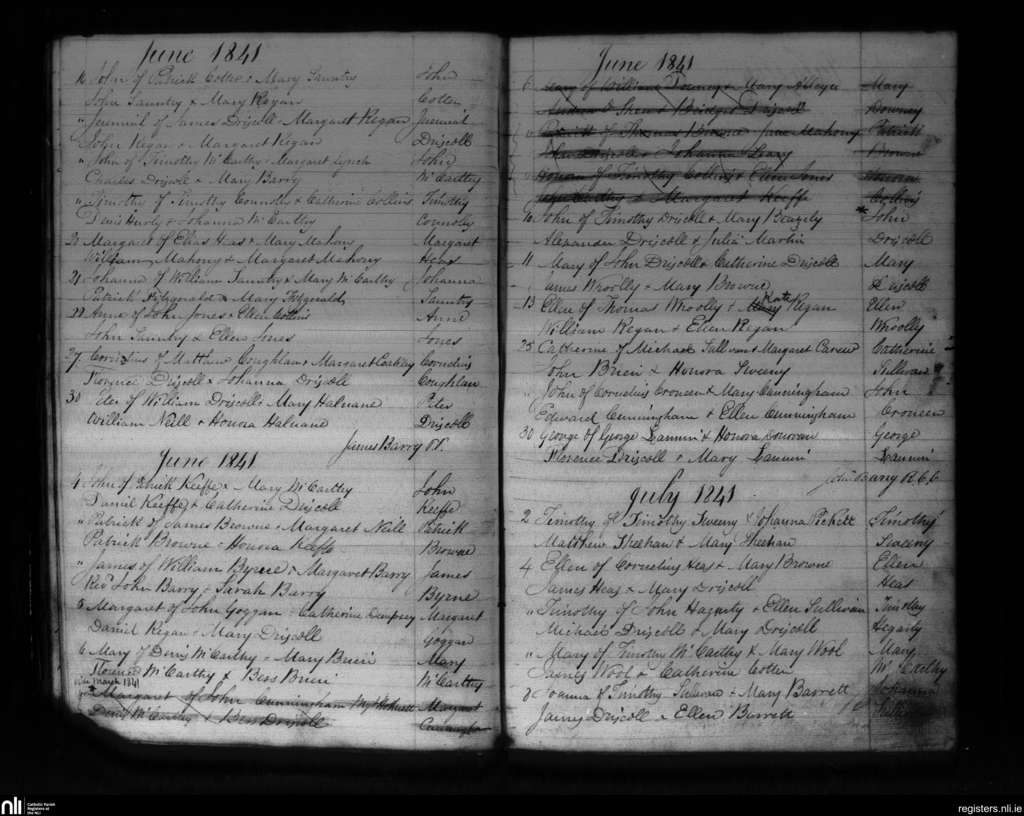 June 1841
16 John of Patrick Cotter & Mary Sauntry John
John Sauntry & Mary Regan Cotter
" Jeremial of James Driscoll & Margaret Regan Jeremial
John Regan & Margaret Regan Driscoll
" John of Timothy McCarthy & Margaret Lynch John
Charles Driscoll & Mary Barry McCarthy
" Timothy of Timothy Connolly & Catherine Collins Timothy
Denis Hurly & Johanna McCarthy Connolly
20 Margaret of Elias Heas & Mary Mahony Margaret
William Mahony & Margaret Mahony Heas
21 Johanna of William Sauntry & Mary McCarthy Johanna
Patrick Fitzgerald & Mary Fitzgerald Sauntry
22 Anne of John Jones & Ellen Collins Anne
John Sauntry & Ellen Jones Jones
27 Cornelius of Matthew Coughlan & Margaret Cornelius
Florence Driscoll & Johanna Driscoll Coughlan
30 Peter of William Driscoll & Mary Halnane Peter
William Neill & Honora Halnane Driscoll
James Barry P.P.
June 1841
4 John of Patrick Keeffe & Mary McCarthy John
Daniel Keeffe & Catherine Driscoll Keeffe
" Patrick of James Browne & Margaret Neill Patrick
Patrick Browne & Honora Keeffe Browne
" James of William Byrne & Margaret Barry James
Revd John Barry & Sarah Barry Byrne
5 Margaret of John Goggan & Catherine Dempsey Margaret
Daniel Regan & Mary Driscoll Goggan
6 Mary of Denis McCarthy & Mary Brien Mary
Florence McCarthy & Bess Brien McCarthy
March 1841
Margaret of John Cunningham Margaret
Denis McCarthy & Bess Driscoll
June 1841
6 Mary of William Downey & Mary Mary
& Bridget Driscoll Downey
Patrick of Thomas Browne & Jane Mahony Patrick
John Driscoll & Johanna Leary Browne
Honora of Timothy Collins & Ellen Jones Honora
McCarthy & Margaret Keeffe Collins
10 John of Timothy Driscoll & Mary Beagely John
Alexander Driscoll & Julia Martin Driscoll
11 Mary of John Driscoll & Catherine Driscoll Mary
James Woolly & Mary Browne Driscoll
13 Ellen of Thomas Woolly & Mary Kate Regan Ellen
William Regan & Ellen Regan Woolly
25 Catherine of Michael Sullivan & Margaret Carew Catherine
John Brien & Honora Sweeny Sullivan
" John of Cornelius Croneen & Mary Cunningham John
Edward Cunningham & Ellen Cunningham Croneen
30 George of George Dannin & Honora Donovan George
Florence Driscoll & Mary Dannin Dannin
John Barry R.C.C.
July 1841
2 Timothy of Timothy Sweeny & Johanna Pickett Timothy
Matthew Sheehan & Mary Sheehan Sweeny
4 Ellen of Cornelius Heas & Mary Browne Ellen
James Heas & Mary Driscoll Heas
" Timothy of John Hagerty & Ellen Sullivan Timothy
Michael Driscoll & Mary Driscoll Hegarty
" Mary of Timothy McCarthy & Mary Wool Mary
James Wool & Catherine Cotter McCarthy
8 Joanna of Timothy Sullivan & Mary Barrett Johanna
James Driscoll & Ellen Barrett
nli Catholic Parish
Registers at
the NLI
registers.nli.ie